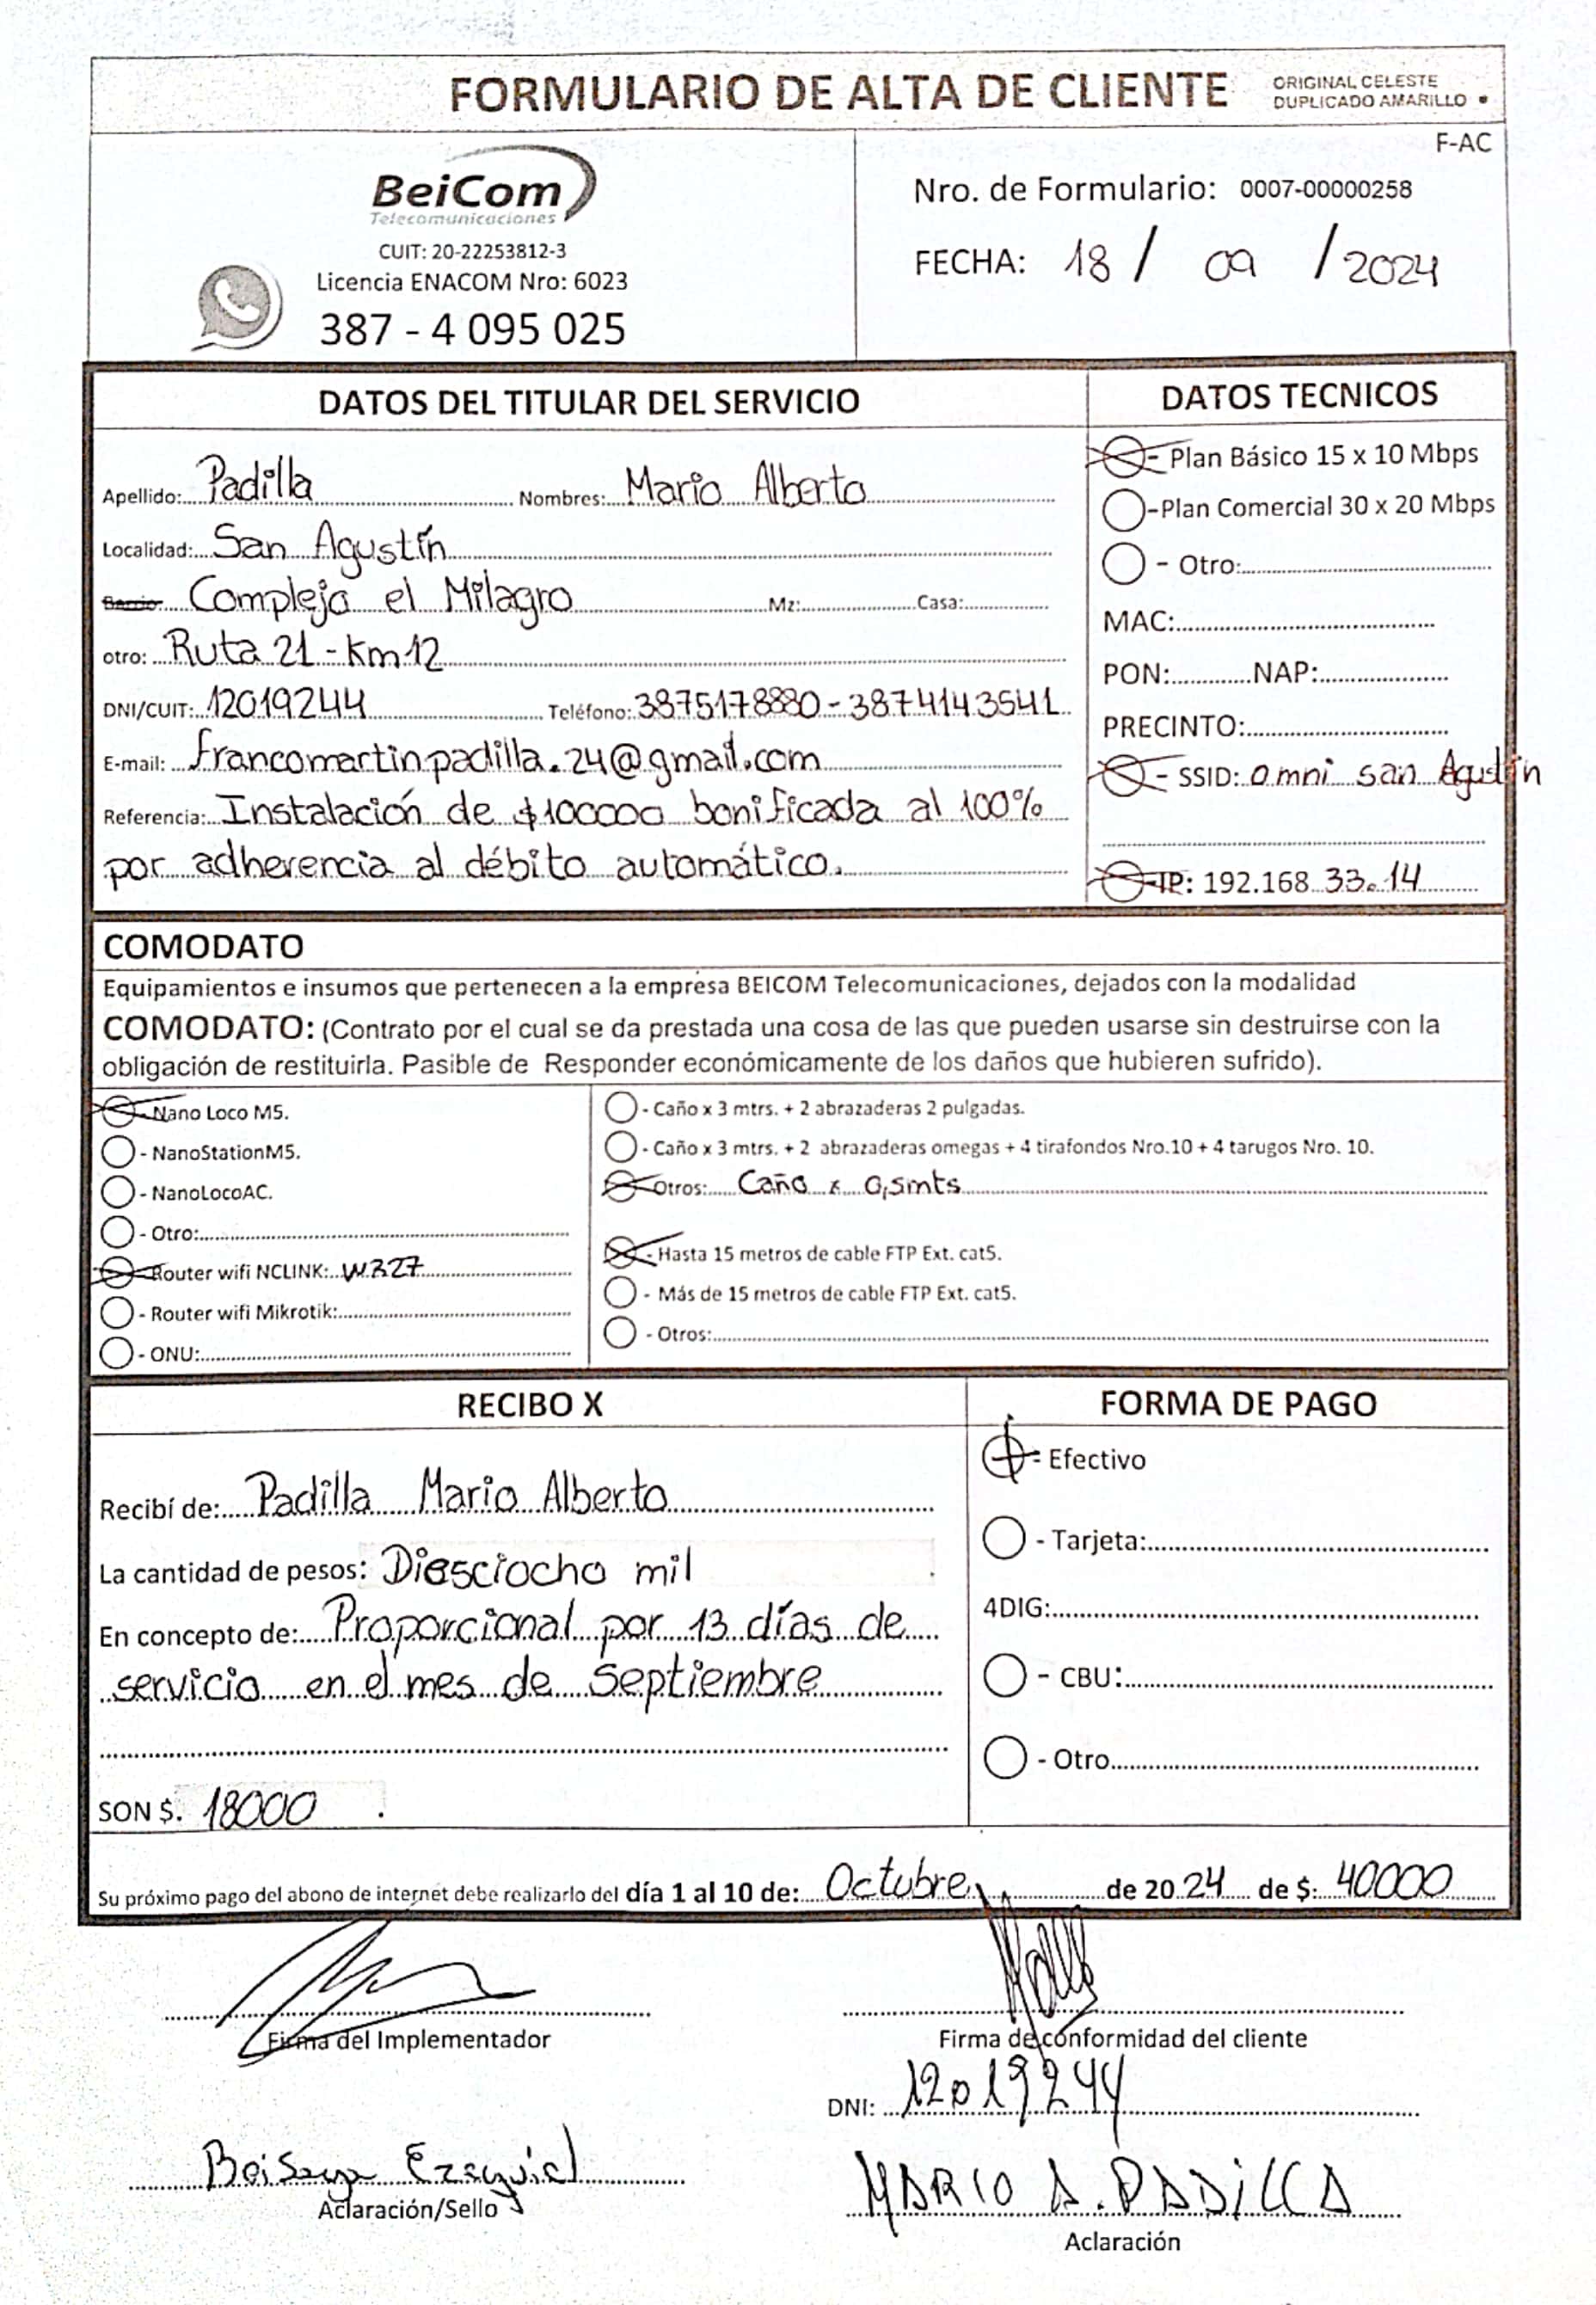 FORMULARIO DE ALTA DE CLIENTE
ORIGINAL CELESTE
DUPLICADO AMARILLO
F-AC
BeiCom
Telecomunicaciones
CUIT: 20-22253812-3
Licencia ENACOM Nro: 6023
387 - 4 095 025
Nro. de Formulario: 0007-00000258
FECHA: 18 / 09 / 2024
DATOS DEL TITULAR DEL SERVICIO
Apellido: Padilla Nombres: Mario Alberto
Localidad: San Agustín
Barrio Complejo el Milagro Mz: Casa:
otro: Ruta 21 - Km 12
DNI/CUIT: 12019244 Teléfono: 3875178880 - 3874143541
E-mail: francomartinpadilla.24@gmail.com
Referencia: Instalación de $100000 bonificada al 100%
por adherencia al débito automático.
DATOS TECNICOS
- Plan Básico 15 x 10 Mbps
-Plan Comercial 30 x 20 Mbps
- Otro:
MAC:
PON: NAP:
PRECINTO:
- SSID: omni san Agustín
- IP: 192.168 33.14
COMODATO
Equipamientos e insumos que pertenecen a la empresa BEICOM Telecomunicaciones, dejados con la modalidad
COMODATO: (Contrato por el cual se da prestada una cosa de las que pueden usarse sin destruirse con la
obligación de restituirla. Pasible de Responder económicamente de los daños que hubieren sufrido).
- Nano Loco M5.
- NanoStationM5.
- NanoLocoAC.
- Otro:
- Router wifi NCLINK: W327
- Router wifi Mikrotik:
- ONU:
- Caño x 3 mtrs. + 2 abrazaderas 2 pulgadas.
- Caño x 3 mtrs. + 2 abrazaderas omegas + 4 tirafondos Nro.10 + 4 tarugos Nro. 10.
- Otros: Caño x 0,5mts
- Hasta 15 metros de cable FTP Ext. cat5.
- Más de 15 metros de cable FTP Ext. cat5.
- Otros:
RECIBO X
Recibí de: Padilla Mario Alberto
La cantidad de pesos: Diesciocho mil
En concepto de: Proporcional por 13 días de
servicio en el mes de Septiembre
SON $. 18000
FORMA DE PAGO
- Efectivo
- Tarjeta:
4DIG:
- CBU:
- Otro
Su próximo pago del abono de internet debe realizarlo del día 1 al 10 de: Octubre de 2024 de $: 40000
Firma del Implementador
Firma de conformidad del cliente
DNI: 12019244
Ezequiel
Aclaración/Sello
MARIO A. PADILLA
Aclaración